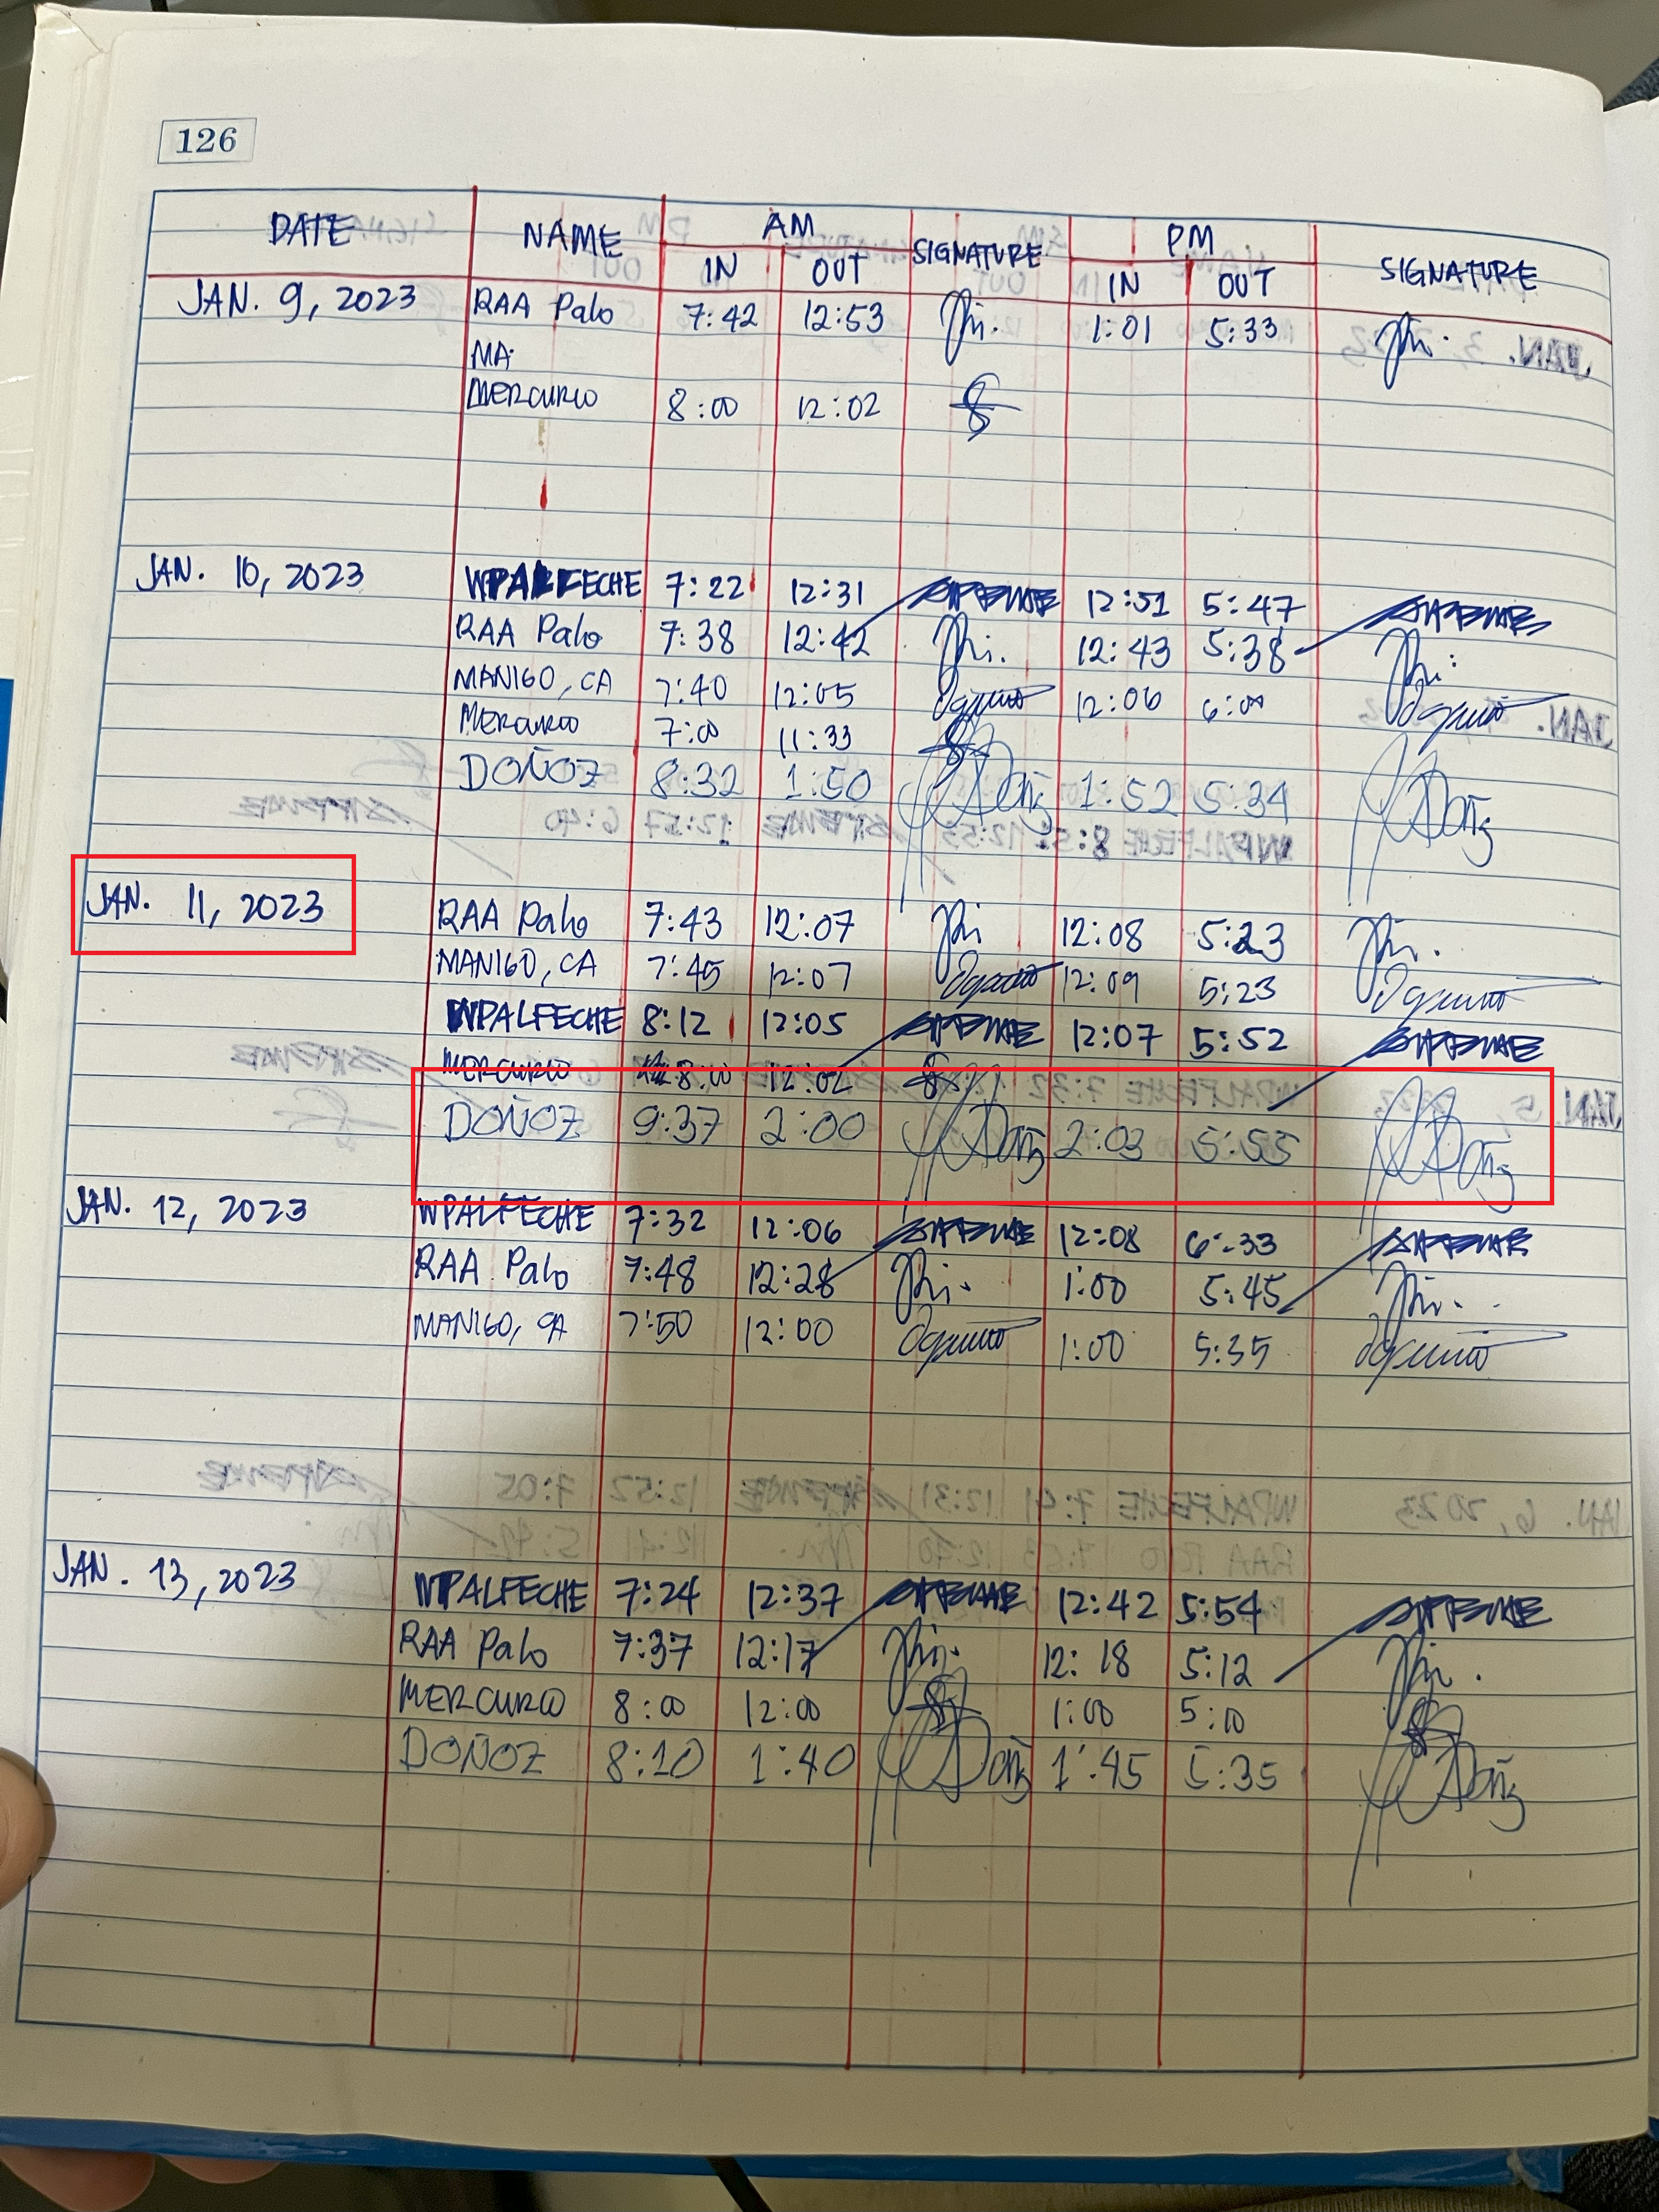 126
DATE NAME AM SIGNATURE PM SIGNATURE
IN OUT IN OUT
JAN. 9, 2023 RAA Palo 7:42 12:53 1:01 5:33
MA.
MERCURIO 8:00 12:02
JAN. 10, 2023 WPALFECHE 7:22 12:31 12:51 5:47
RAA Palo 7:38 12:42 12:43 5:38
MANIGO, CA 7:40 12:05 12:06 6:00
MERCURIO 7:00 11:33
DOÑOZ 8:32 1:50 1:52 5:34
JAN. 11, 2023 RAA Palo 7:43 12:07 12:08 5:23
MANIGO, CA 7:45 12:07 12:09 5:23
WPALFECHE 8:12 12:05 12:07 5:52
MERCURIO 8:00 12:02
DOÑOZ 9:37 2:00 2:03 5:55
JAN. 12, 2023 WPALFECHE 7:32 12:06 12:08 6:33
RAA Palo 7:48 12:28 1:00 5:45
MANIGO, CA 7:50 12:00 1:00 5:35
JAN. 13, 2023 WPALFECHE 7:24 12:37 12:42 5:54
RAA Palo 7:37 12:17 12:18 5:12
MERCURIO 8:00 12:00 1:00 5:00
DOÑOZ 8:10 1:40 1:45 5:35